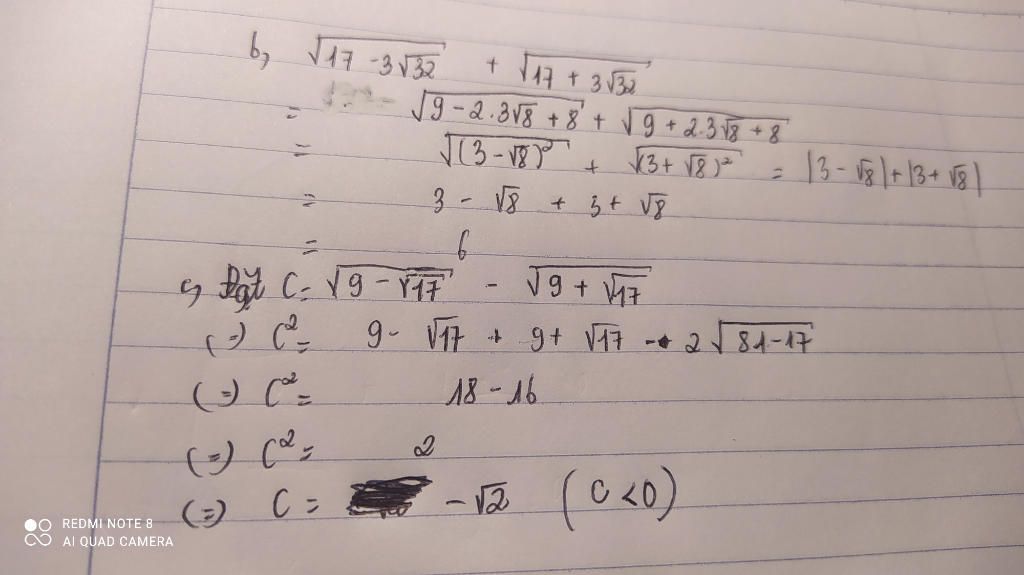 b, √17 - 3√32 + √17 + 3√32
= √9 - 2.3√8 + 8 + √9 + 2.3√8 + 8
= √(3 - √8)² + √(3 + √8)² = |3 - √8| + |3 + √8|
= 3 - √8 + 3 + √8
= 6
c, Đặt C = √9 - √17 - √9 + √17
(=) C² = 9 - √17 + 9 + √17 - 2√81 - 17
(=) C² = 18 - 16
(=) C² = 2
(=) C = - √2 (C < 0)
REDMI NOTE 8
AI QUAD CAMERA